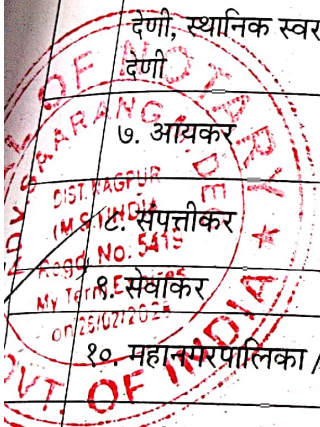 देणी, स्थानिक स्वर
देणी
७. आयकर
८. संपत्तीकर
९. सेवाकर
१०. महानगरपालिका /
OF NOTARY
SAARANG
DE
DIST. NAGPUR
(M.S.) INDIA
Regd. No.
My Term Expires
on 26/02/202
GOVT. OF INDIA